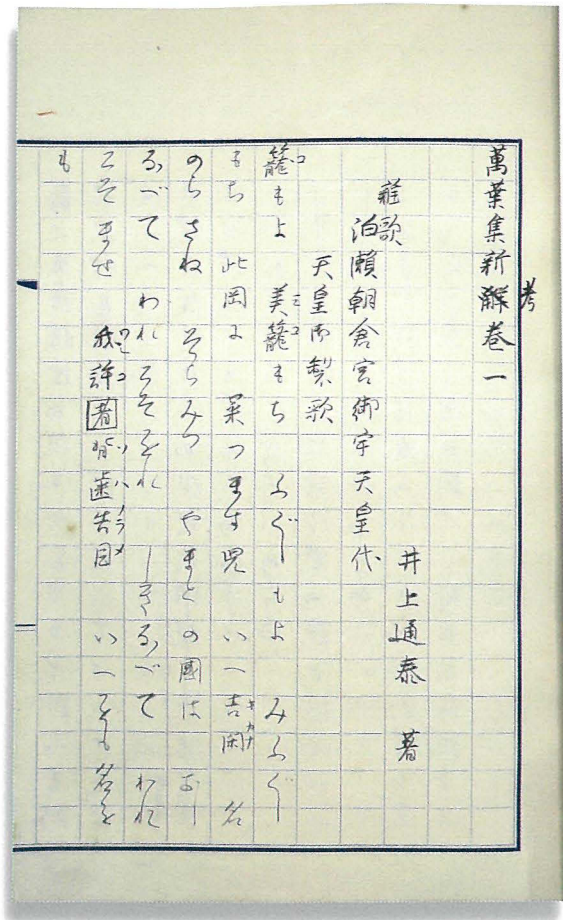 萬葉集新解巻一
考
井上通泰 著
雑歌
泊瀬朝倉宮御宇天皇代
天皇御製歌
籠もよ 美籠もち ふぐしもよ みふぐし
コ ミコ
もち 此岡に 菜つます児 いへ吉閑 名
キカナ
のらさね そらみつ やまとの國は おし
なべて われこそをれ しきなべて われ
こそませ 我許者背歯告目 いへをも名を
ワコソハノラメ
も